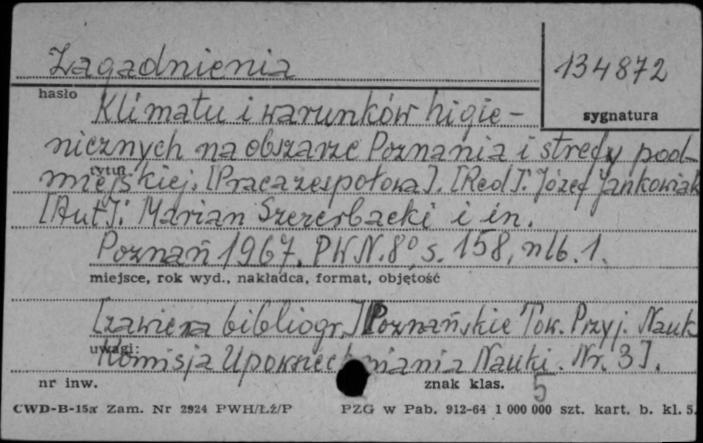 Zagadnienia
134872
hasło
sygnatura
Klimatu i warunków higie-
nicznych na obszarze Poznania i strefy pod-
tytuł
miejskiej. [Praca zespołowa]. [Red]: Józef Jankowiak
[Aut]: Marian Szczerbacki i in.
Poznań 1967. PWN. 8°, s. 158, nlb. 1.
miejsce, rok wyd., nakładca, format, objętość
[zawiera bibliogr.] [Poznańskie Tow. Przyj. Nauk
uwagi:
Komisja Upowszechniania Nauki. Nr. 3].
nr inw.
znak klas.
5
CWD-B-15a Zam. Nr 2924 PWH/Łź/P PZG w Pab. 912-64 1 000 000 szt. kart. b. kl. 5.